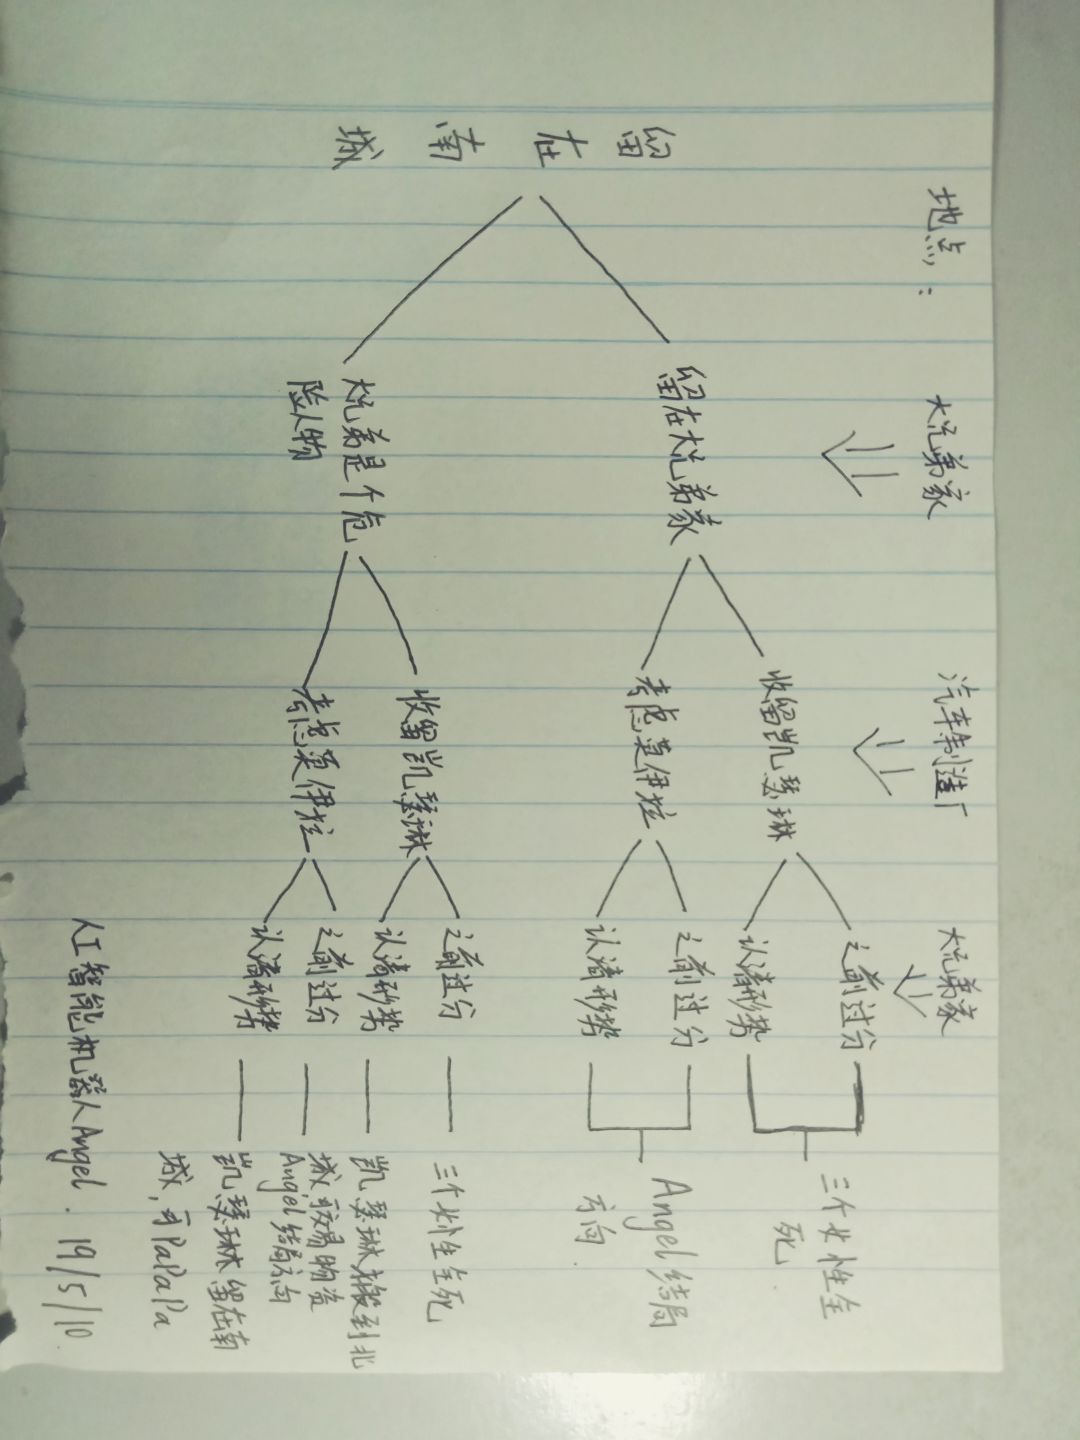 地点：
大兄弟家
汽车制造厂
大兄弟家
留在南城
留在大兄弟家
收留凯瑟琳
之前过分
认清形势
三个女性全
死
考虑莫伊拉
之前过分
认清形势
Angel结局
方向
大兄弟是个危
险人物
收留凯瑟琳
之前过分
三个女性全死
认清形势
凯瑟琳搬到北
城,可交易物资
考虑莫伊拉
之前过分
Angel结局方向
认清形势
凯瑟琳留在南
城,可PaPaPa
人工智能机器人Angel. 19/5/10